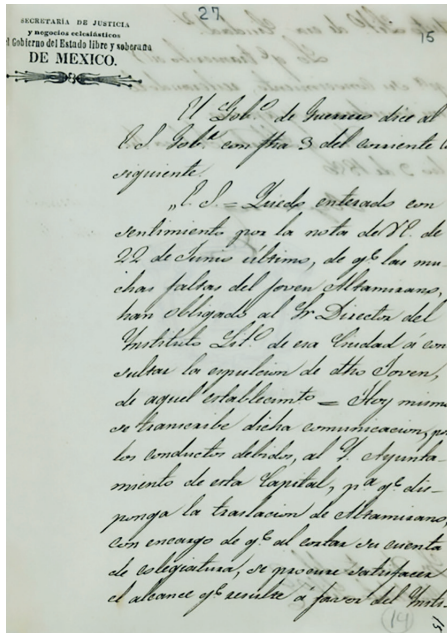 27
15
SECRETARÍA DE JUSTICIA
y negocios eclesiásticos
el Gobierno del Estado libre y soberano
DE MEXICO.
El Gob.º de Guerrero dice al
E. S. Gob.r con fha 3 del corriente lo
siguiente.
„E. S. = Quedo enterado con
sentimiento por la nota de V.E. de
22 de Junio último, de q.e las mu
chas faltas del joven Altamirano,
han obligado al Sr Director del
Instituto Lit.º de esa Ciudad á con
sultar la expulcion de dho Joven,
de aquel establecimto = Hoy mismo
se transcribe dicha comunicacion, por
los conductos debidos, al Y. Ayunta-
miento de esta Capital, p.a q.e dis-
ponga la traslacion de Altamirano,
con encargo de q.e al cortar su cuenta
de colegiatura, se procure satisfacer
el alcance q.e resulte á favor del Insti-
(14)